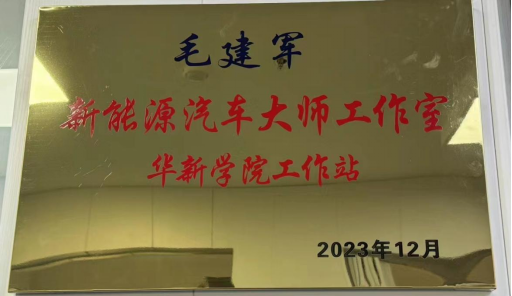 毛建军
新能源汽车大师工作室
华新学院工作站
2023年12月